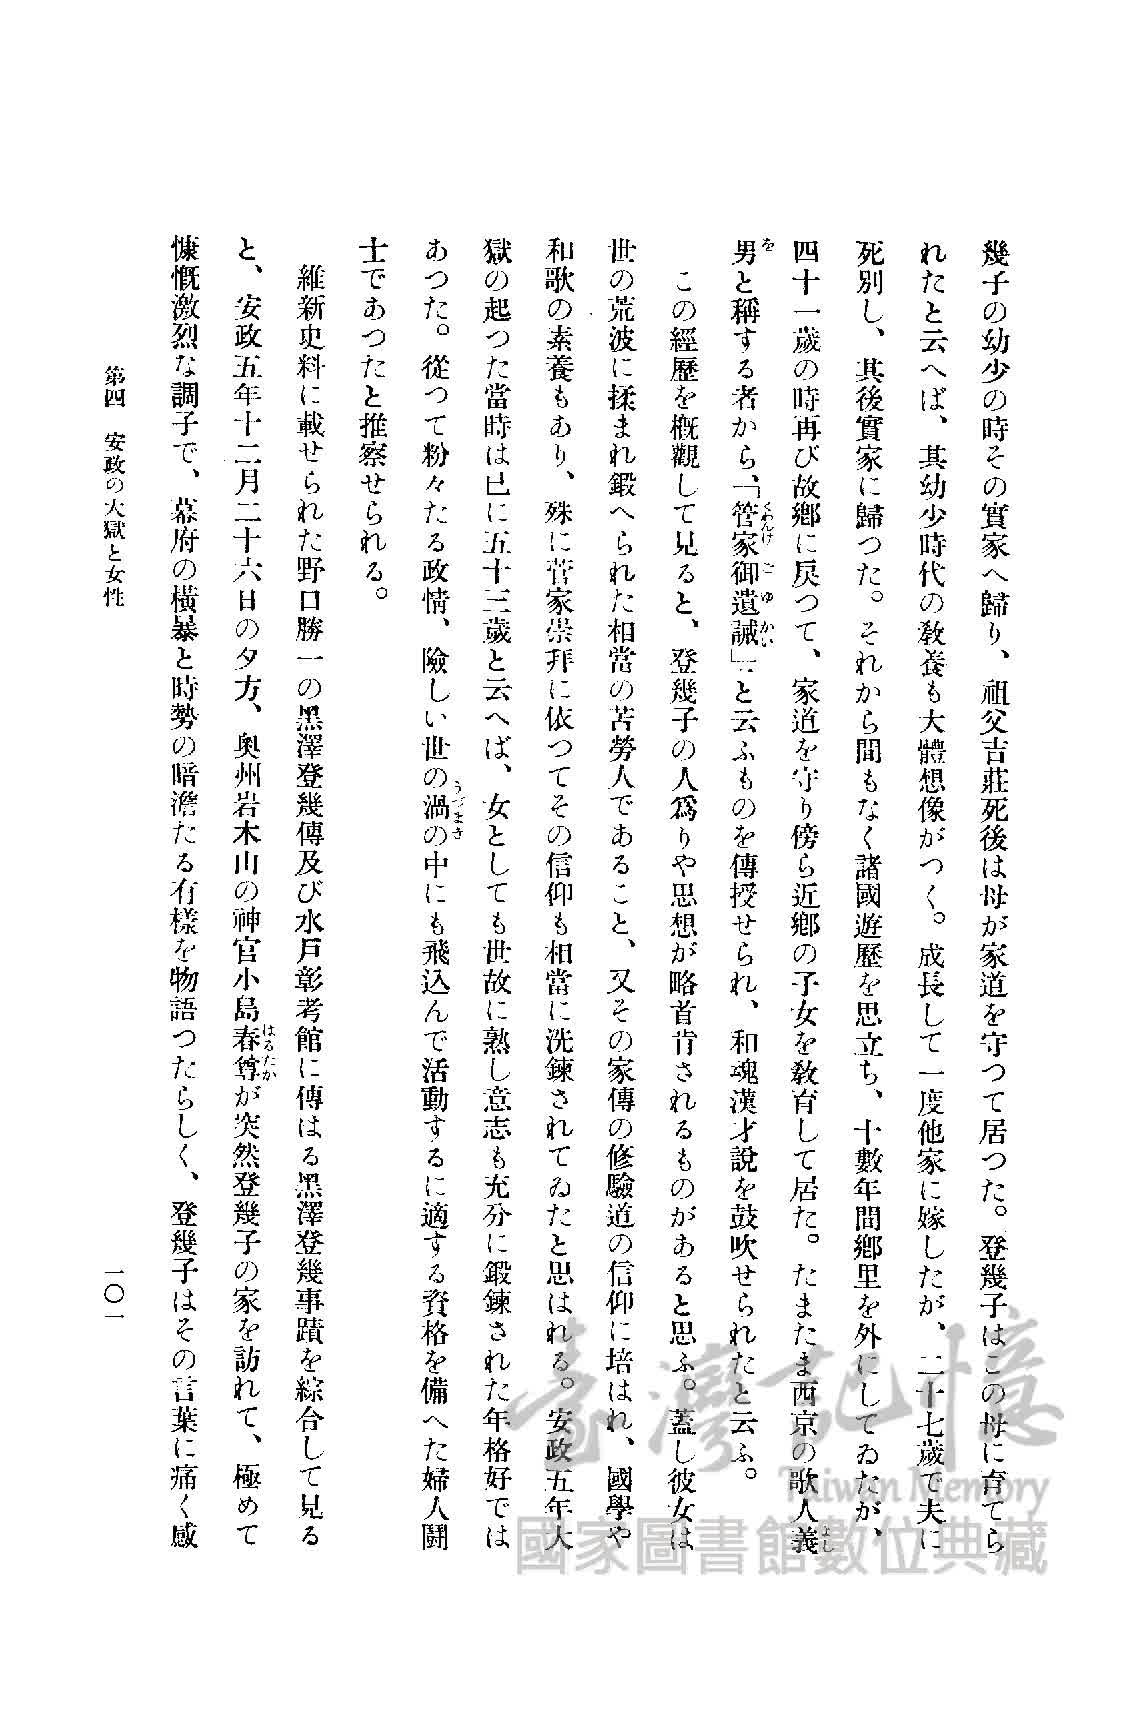 幾子の幼少の時その實家へ歸り、祖父吉莊死後は母が家道を守つて居つた。登幾子はこの母に育てら
れたと云へば、其幼少時代の敎養も大體想像がつく。成長して一度他家に嫁したが、二十七歲で夫に
死別し、其後實家に歸つた。それから間もなく諸國遊歷を思立ち、十數年間鄕里を外にしてゐたが、
四十一歲の時再び故鄕に戾つて、家道を守り傍ら近鄕の子女を敎育して居た。たまたま西京の歌人義
男と稱する者から、「管家御遺誡」と云ふものを傳授せられ、和魂漢才說を鼓吹せられたと云ふ。
この經歷を槪觀して見ると、登幾子の人爲りや思想が略首肯されるものがあると思ふ。蓋し彼女は
世の荒波に揉まれ鍛へられた相當の苦勞人であること、又その家傳の修驗道の信仰に培はれ、國學や
和歌の素養もあり、殊に菅家崇拜に依つてその信仰も相當に洗鍊されてゐたと思はれる。安政五年大
獄の起つた當時は已に五十三歲と云へば、女としても世故に熟し意志も充分に鍛鍊された年格好では
あつた。從つて粉々たる政情、險しい世の渦の中にも飛込んで活動するに適する資格を備へた婦人鬪
士であつたと推察せられる。
維新史料に載せられた野口勝一の黑澤登幾傳及び水戶彰考館に傳はる黑澤登幾事蹟を綜合して見る
と、安政五年十二月二十六日の夕方、奧州岩木山の神官小島春尊が突然登幾子の家を訪れて、極めて
慷慨激烈な調子で、幕府の橫暴と時勢の暗澹たる有樣を物語つたらしく、登幾子はその言葉に痛く感
第四 安政の大獄と女性
一〇一
臺灣記憶
Taiwan Memory
國家圖書館數位典藏